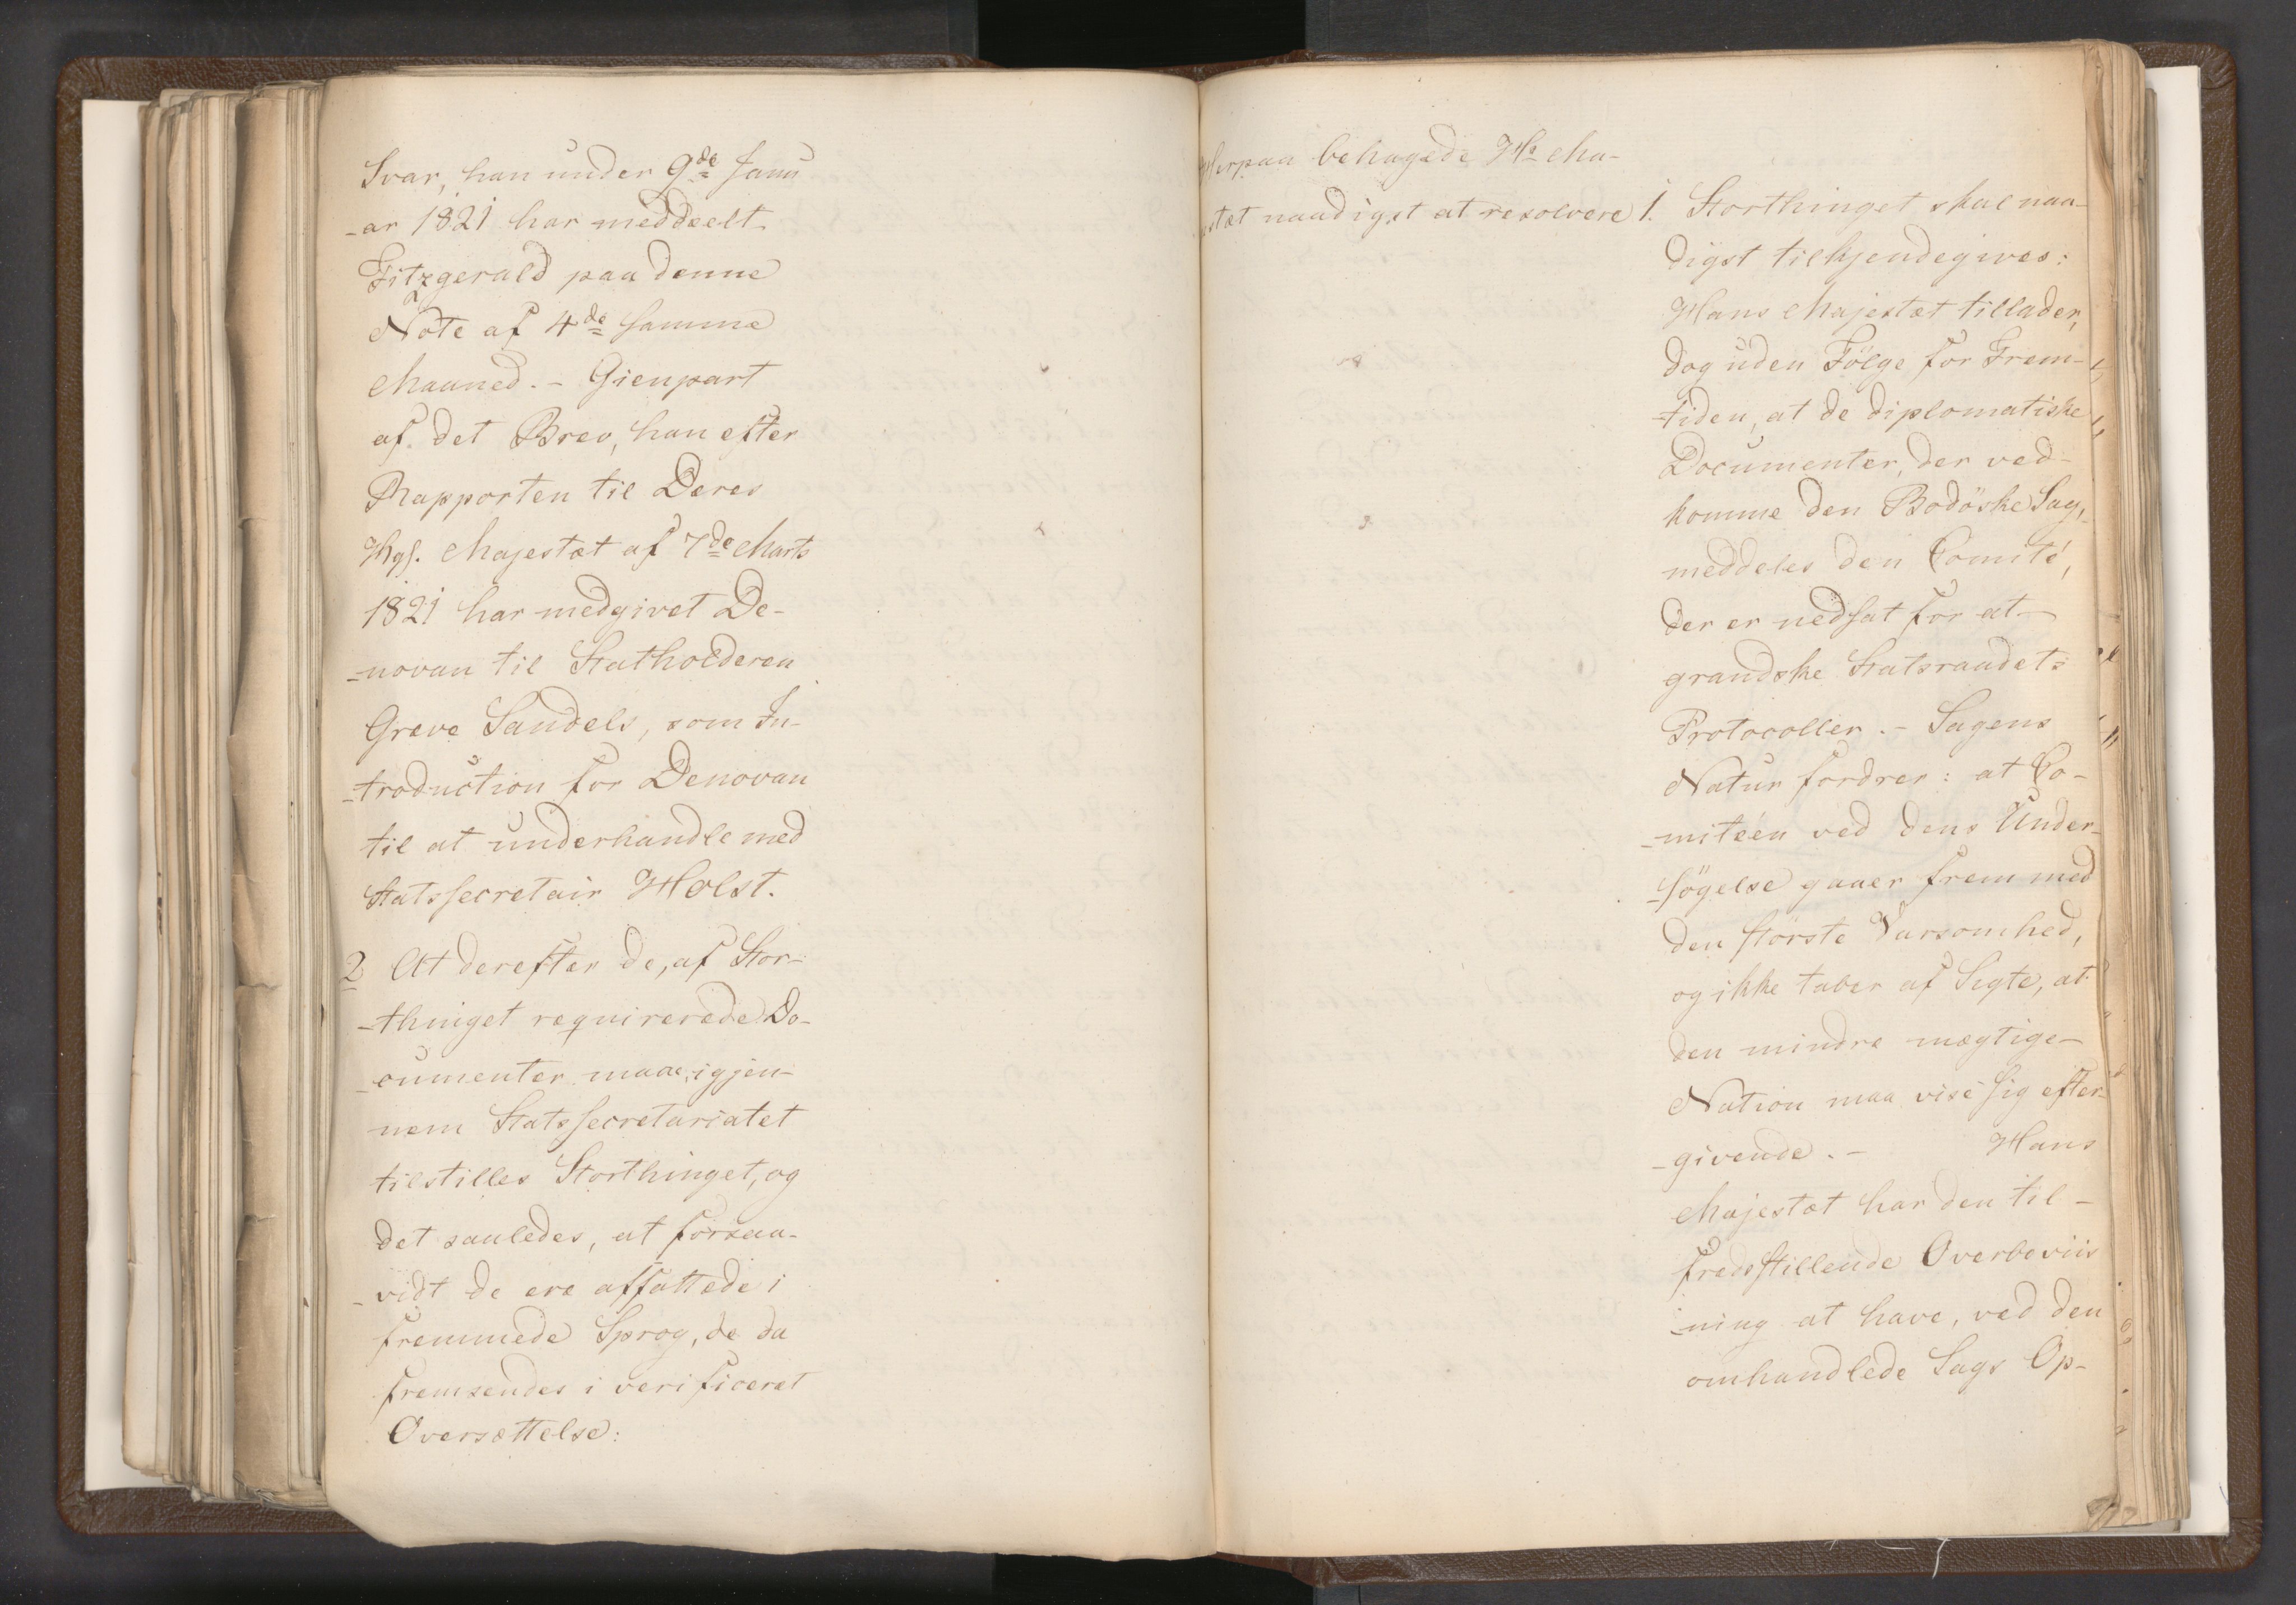 Svar, han under 9de Janu
-ar 1821 har meddeelt
Fitzgerald paa denne
Note af 4de samme
Maaned. - Gienpart
af det Brev, han efter
Rapporten til Deres
Kgl. Majestæt af 7de Marts
1821 har medgivet De-
-novan til Statholderen
Greve Sandels, som In-
-troduction for Denovan
til at underhandle med
Statssecretair Holst.
2 At derefter de, af Stor-
-thinget requirerede Do-
-cumenter maae, igjen-
nem Statssecretariatet
tilstilles Storthinget, og
det saaledes, at forsaa-
-vidt de ere affattede i
fremmede Sprog, de da
fremsendes i verificeret
Oversættelse:
Herpaa behagede Hs Ma-
jestæt naadigst at resolvere
1. Storthinget skal naa-
digst tilkjendegives:
Hans Majestæt tillader,
dog uden Fölge for Frem-
-tiden, at de diplomatiske
Documenter, der ved-
komme den Bodöske Sag,
meddeles den Comité,
der er nedsat for at
grandske Statsraadets
Protocoller. - Sagens
Natur fordrer: at Co-
-miteen ved dens Under-
-sögelse gaaer frem med
den störste Varsomhed,
og ikke taber af Sigte, at
den mindre mægtige
Nation maa vise sig efter-
-givende. - Hans
Majestæt har den til-
fredsstillende Overbeviis
-ning at have, ved den
omhandlede Sags Op-